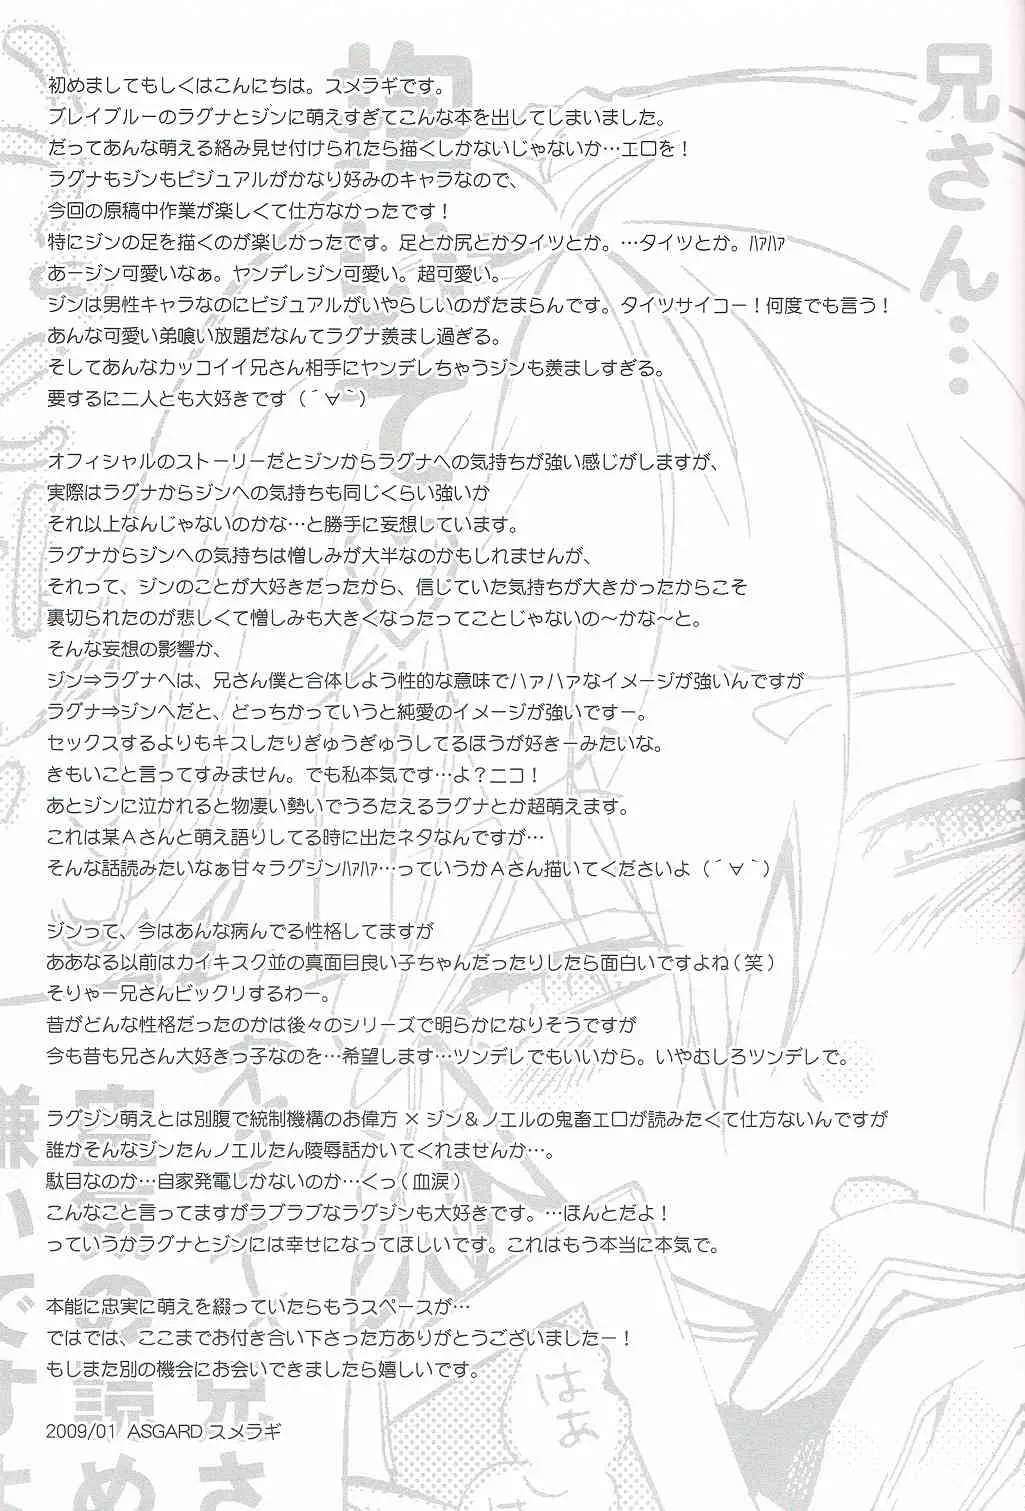 初めましてもしくはこんにちは。スメラギです。
ブレイブルーのラグナとジンに萌えすぎてこんな本を出してしまいました。
だってあんな萌える絡み見せ付けられたら描くしかないじゃないか…エロを！
ラグナもジンもビジュアルがかなり好みのキャラなので、
今回の原稿中作業が楽しくて仕方なかったです！
特にジンの足を描くのが楽しかったです。足とか尻とかタイツとか。…タイツとか。ﾊｧﾊｧ
あージン可愛いなぁ。ヤンデレジン可愛い。超可愛い。
ジンは男性キャラなのにビジュアルがいやらしいのがたまらんです。タイツサイコー！何度でも言う！
あんな可愛い弟喰い放題だなんてラグナ羨まし過ぎる。
そしてあんなカッコイイ兄さん相手にヤンデレちゃうジンも羨ましすぎる。
要するに二人とも大好きです（´∀｀）
オフィシャルのストーリーだとジンからラグナへの気持ちが強い感じがしますが、
実際はラグナからジンへの気持ちも同じくらい強いか
それ以上なんじゃないのかな…と勝手に妄想しています。
ラグナからジンへの気持ちは憎しみが大半なのかもしれませんが、
それって、ジンのことが大好きだったから、信じていた気持ちが大きかったからこそ
裏切られたのが悲しくて憎しみも大きくなったってことじゃないの～かな～と。
そんな妄想の影響か、
ジン⇒ラグナへは、兄さん僕と合体しよう性的な意味でハァハァなイメージが強いんですが
ラグナ⇒ジンへだと、どっちかっていうと純愛のイメージが強いですー。
セックスするよりもキスしたりぎゅうぎゅうしてるほうが好きーみたいな。
きもいこと言ってすみません。でも私本気です…よ？ニコ！
あとジンに泣かれると物凄い勢いでうろたえるラグナとか超萌えます。
これは某Aさんと萌え語りしてる時に出たネタなんですが…
そんな話読みたいなぁ甘々ラグジンﾊｧﾊｧ…っていうかAさん描いてくださいよ（´∀｀）
ジンって、今はあんな病んでる性格してますが
ああなる以前はカイキスク並の真面目良い子ちゃんだったりしたら面白いですよね（笑）
そりゃー兄さんビックリするわー。
昔がどんな性格だったのかは後々のシリーズで明らかになりそうですが
今も昔も兄さん大好きっ子なのを…希望します…ツンデレでもいいから。いやむしろツンデレで。
ラグジン萌えとは別腹で統制機構のお偉方×ジン＆ノエルの鬼畜エロが読みたくて仕方ないんですが
誰かそんなジンたんノエルたん陵辱話かいてくれませんか…。
駄目なのか…自家発電しかないのか…くっ（血涙）
こんなこと言ってますがラブラブなラグジンも大好きです。…ほんとだよ！
っていうかラグナとジンには幸せになってほしいです。これはもう本当に本気で。
本能に忠実に萌えを綴っていたらもうスペースが…
ではでは、ここまでお付き合い下さった方ありがとうございましたー！
もしまた別の機会にお会いできましたら嬉しいです。
2009/01 ASGARD スメラギ
兄さん…
抱いて
はぁ